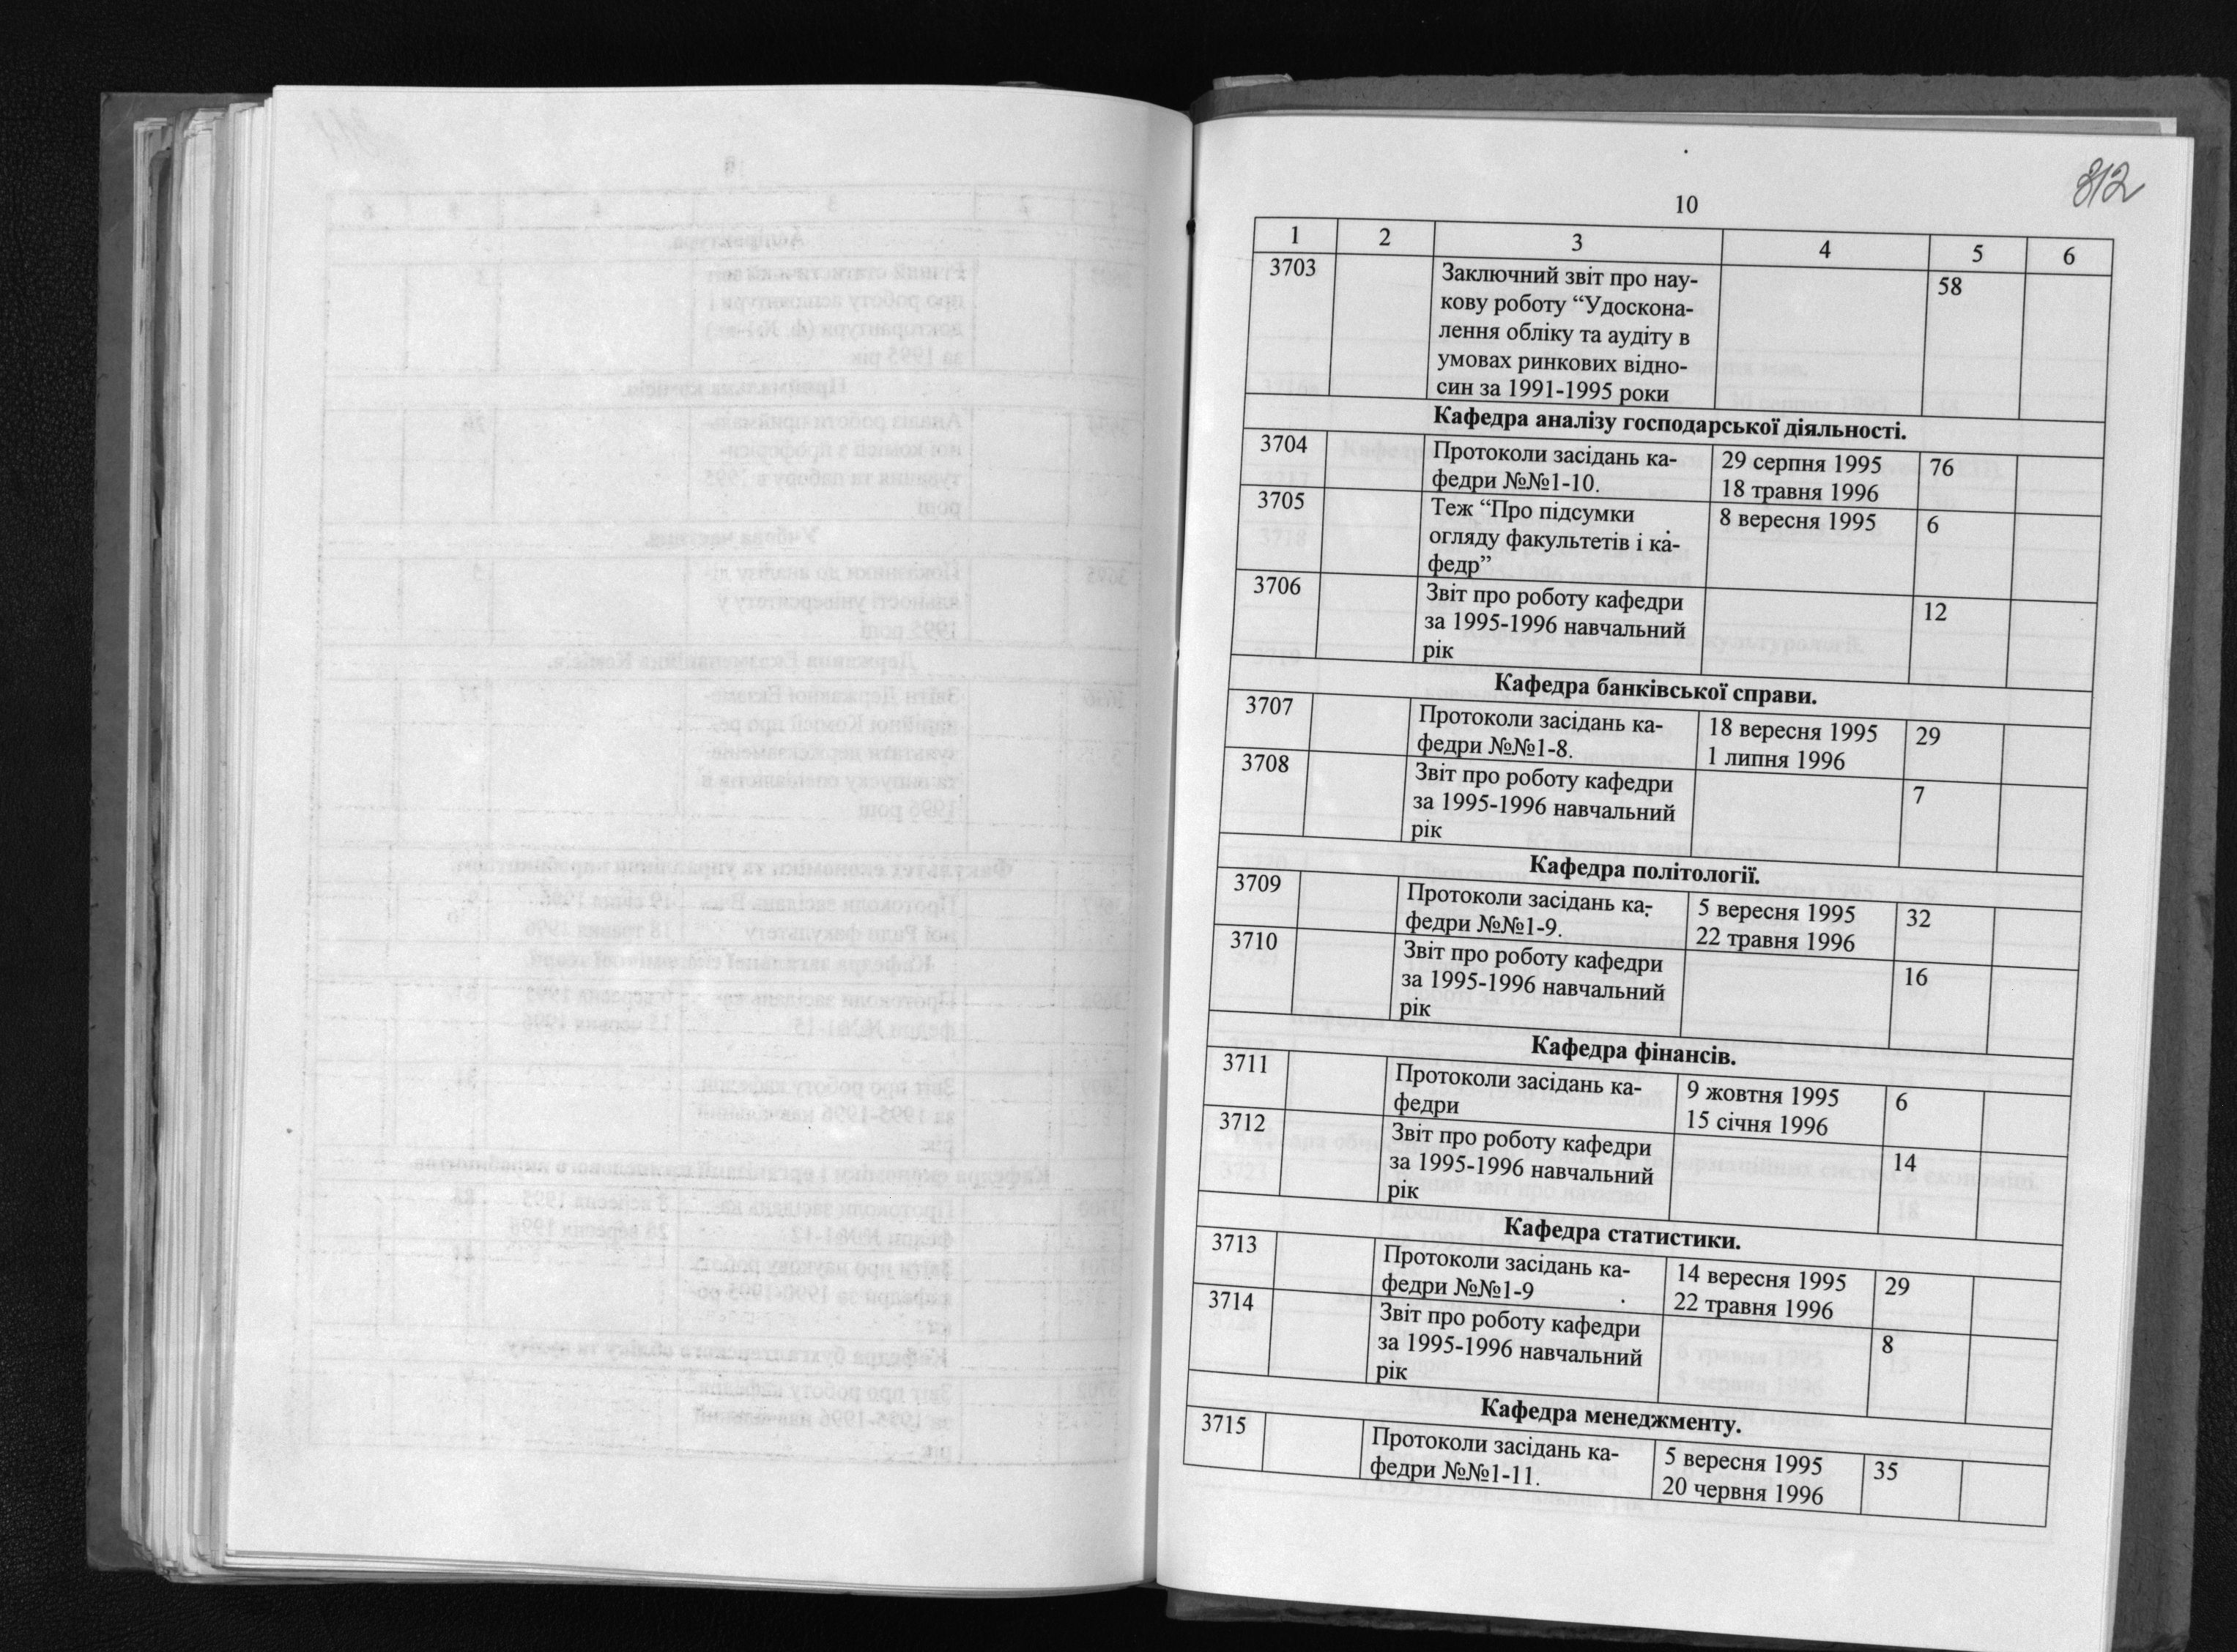 312
10
1 2 3 4 5 6
3703 Заключний звіт про нау- 58
кову роботу “Удоскона-
лення обліку та аудіту в
умовах ринкових відно-
син за 1991-1995 роки
Кафедра аналізу господарської діяльності.
3704 Протоколи засідань ка- 29 серпня 1995 76
федри №№1-10. 18 травня 1996
3705 Теж “Про підсумки 8 вересня 1995 6
огляду факультетів і ка-
федр”
3706 Звіт про роботу кафедри 12
за 1995-1996 навчальний
рік
Кафедра банківської справи.
3707 Протоколи засідань ка- 18 вересня 1995 29
федри №№1-8. 1 липня 1996
3708 Звіт про роботу кафедри 7
за 1995-1996 навчальний
рік
Кафедра політології.
3709 Протоколи засідань ка- 5 вересня 1995 32
федри №№1-9. 22 травня 1996
3710 Звіт про роботу кафедри 16
за 1995-1996 навчальний
рік
Кафедра фінансів.
3711 Протоколи засідань ка- 9 жовтня 1995 6
федри 15 січня 1996
3712 Звіт про роботу кафедри 14
за 1995-1996 навчальний
рік
Кафедра статистики.
3713 Протоколи засідань ка- 14 вересня 1995 29
федри №№1-9 22 травня 1996
3714 Звіт про роботу кафедри 8
за 1995-1996 навчальний
рік
Кафедра менеджменту.
3715 Протоколи засідань ка- 5 вересня 1995 35
федри №№1-11. 20 червня 1996